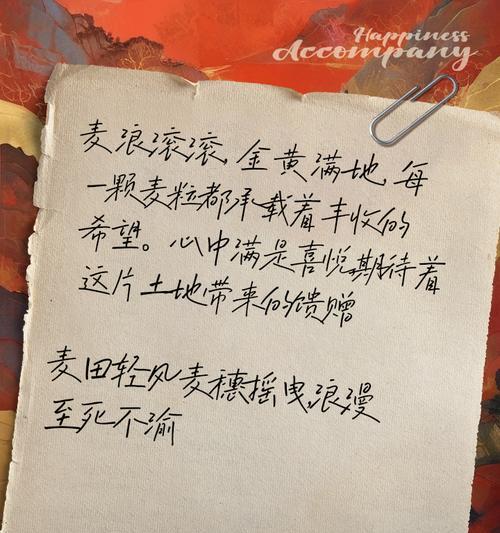 Happiness
Accompany
麦浪滚滚,金黄满地,每
一颗麦粒都承载着丰收的
希望。心中满是喜悦期待着
这片土地带来的馈赠
麦田轻风麦穗摇曳,浪漫
至死不渝